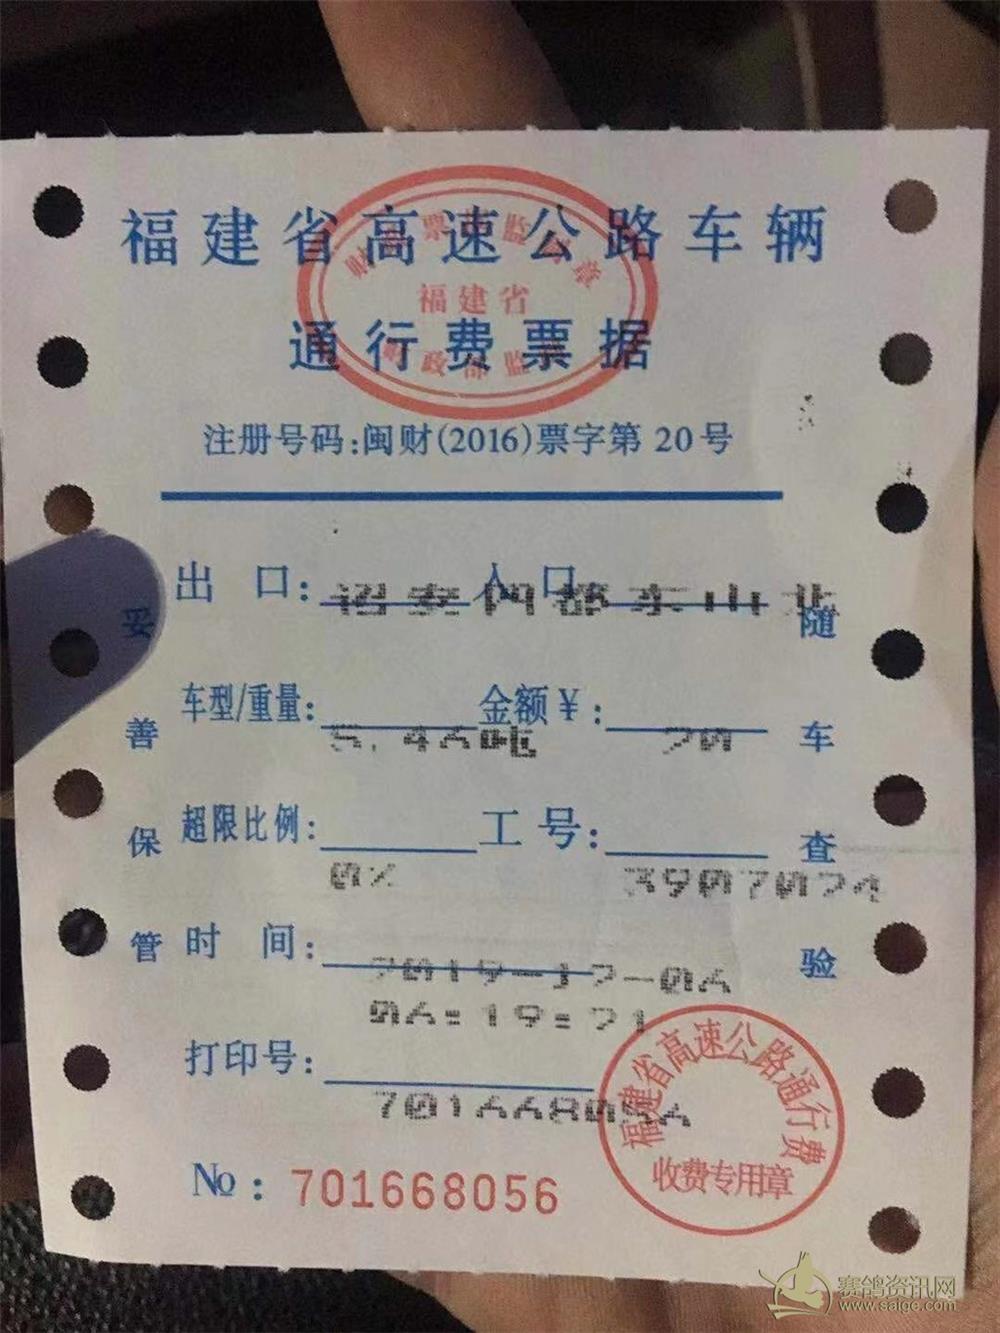 福建省高速公路车辆
通行费票据
福建省
注册号码:闽财(2016)票字第 20号
出 口: 诏安闽都 入 口 东山北
车型/重量: 5.46吨 金额¥: 20
超限比例: 0% 工号: 3907024
时 间: 2019-12-06
06:19:21
打印号: 701668056
№: 701668056
妥善保管
随车查验
福建省高速公路通行费
收费专用章
赛鸽资讯网
www.saige.com